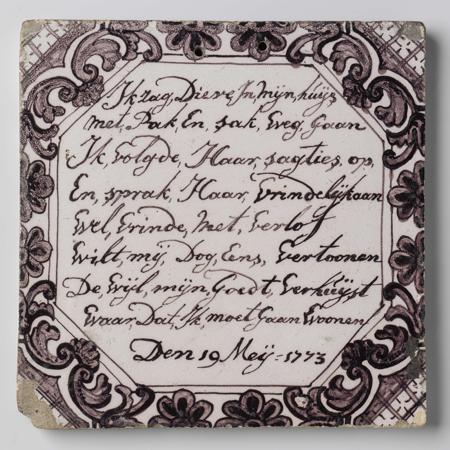 Ik zag, Dieve, In, mijn, huijs
met, Pak, En, sak, weg, Gaan
Ik, volgde, Haar, sagties, op,
En, sprak, Haar, vrindelijk, aan
wel, vrinde, met, verlof
wilt, mij, Dog, Eens, vertoonen
De, wijl, mijn, Goedt, verhuijst
waar, Dat, Ik, moet, Gaan, woonen
Den 19 Meij = 1773